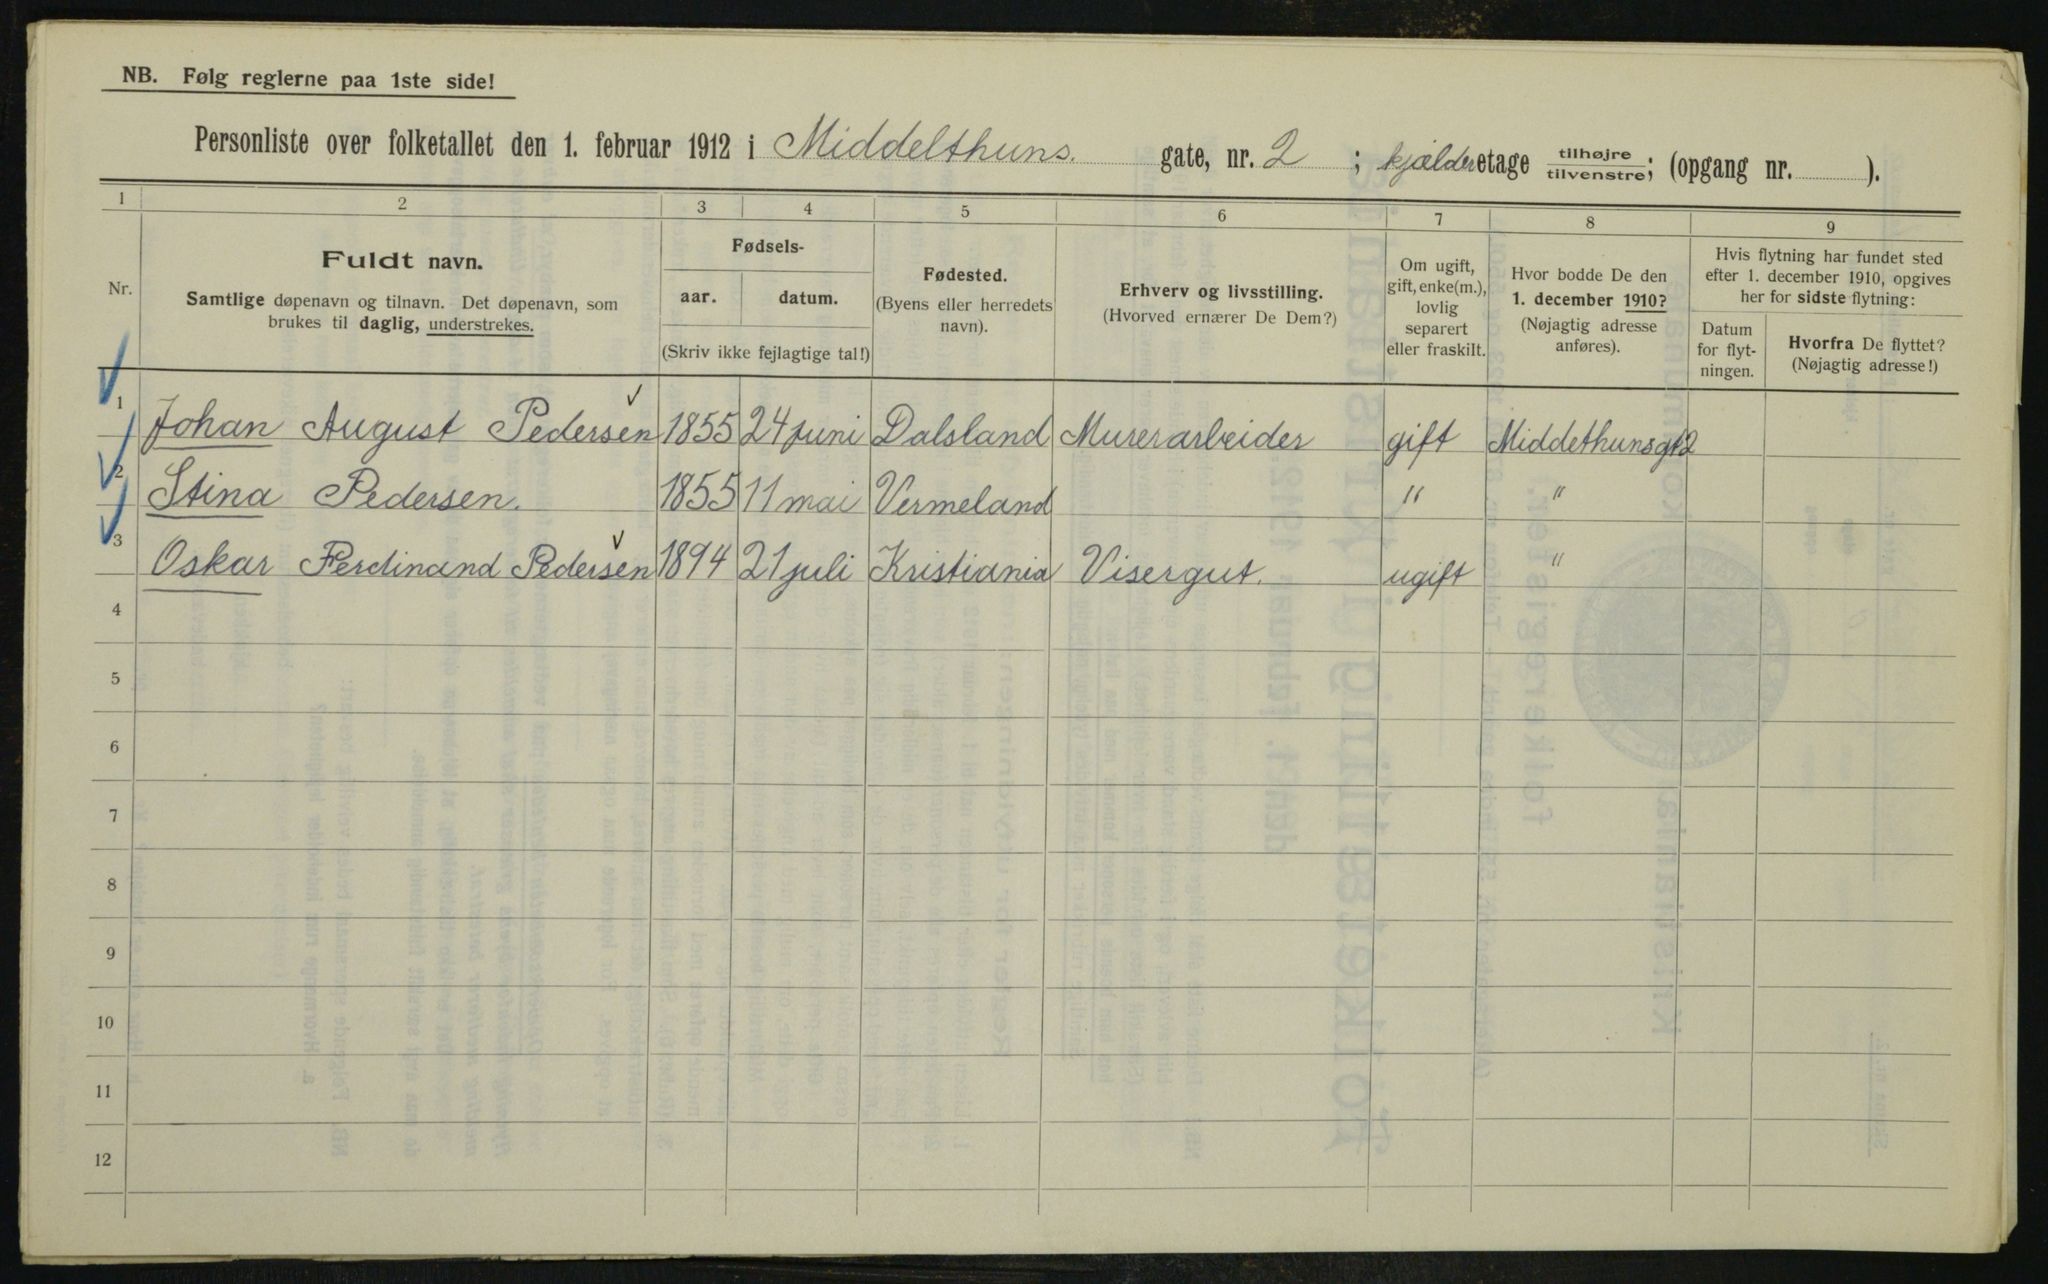 NB. Følg reglerne paa 1ste side!
Personliste over folketallet den 1. februar 1912 i Middelthuns. gate, nr. 2 ; kjælder etage tilhøjre tilvenstre; (opgang nr. ).
1 2 3 4 5 6 7 8 9
Nr.
Fuldt navn.
Samtlige døpenavn og tilnavn. Det døpenavn, som
brukes til daglig, understrekes.
Fødsels-
aar. datum.
(Skriv ikke fejlagtige tal!)
Fødested.
(Byens eller herredets
navn).
Erhverv og livsstilling.
(Hvorved ernærer De Dem?)
Om ugift,
gift, enke(m.),
lovlig
separert
eller fraskilt.
Hvor bodde De den
1. december 1910?
(Nøjagtig adresse
anføres).
Hvis flytning har fundet sted
efter 1. december 1910, opgives
her for sidste flytning:
Datum
for flyt-
ningen.
Hvorfra De flyttet?
(Nøjagtig adresse!)
1 Johan August Pedersen 1855 24 juni Dalsland Murerarbeider gift Middethunsgt 2
2 Stina Pedersen. 1855 11 mai Vermeland " "
3 Oskar Ferdinand Pedersen 1894 21 juli Kristiania Visergut. ugift "
4
5
6
7
8
9
10
11
12